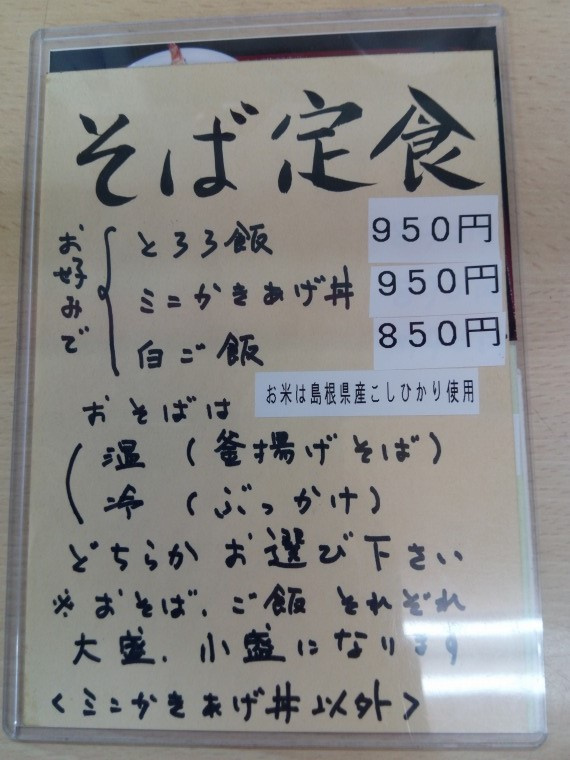 そば定食
お好みで
とろろ飯 950円
ミニかきあげ丼 950円
白ご飯 850円
お米は島根県産こしひかり使用
おそばは
温(釜揚げそば)
冷(ぶっかけ)
どちらかお選び下さい
※おそば、ご飯 それぞれ
大盛、小盛になります
<ミニかきあげ丼以外>